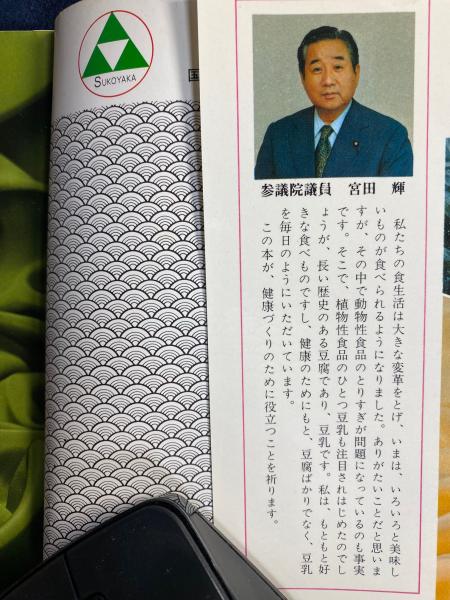 SUKOYAKA
参議院議員　宮田　輝
私たちの食生活は大きな変革をとげ、いまは、いろいろと美味し
いものが食べられるようになりました。ありがたいことだと思いま
すが、その中で動物性食品のとりすぎが問題になっているのも事実
です。そこで、植物性食品のひとつ豆乳も注目されはじめたのでし
ょうが、長い歴史のある豆腐であり、豆乳です。私は、もともと好
きな食べものですし、健康のためにもと、豆腐ばかりでなく、豆乳
を毎日のようにいただいています。
この本が、健康づくりのために役立つことを祈ります。